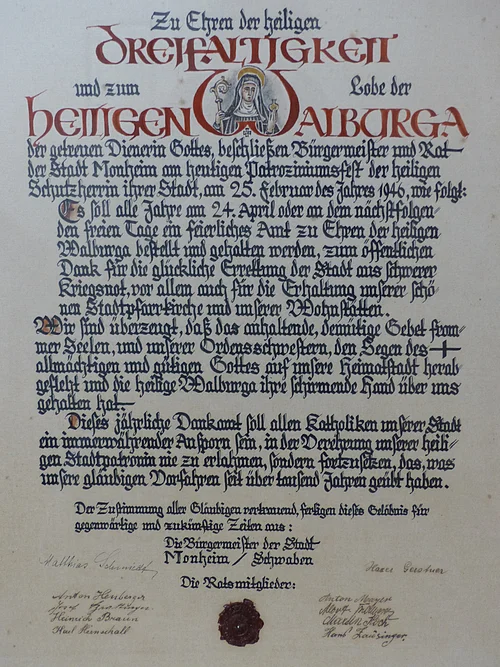 Zu Ehren der heiligen
DREIFALTIGKEIT
und zum Lobe der
HEILIGEN WALBURGA
der getreuen Dienerin Gottes, beschließen Bürgermeister und Rat
der Stadt Monheim am heutigen Patroziniumsfest der heiligen
Schutzherrin ihrer Stadt, am 25. Februar des Jahres 1946, wie folgt:
Es soll alle Jahre am 24. April oder an dem nächstfolgen-
den freien Tage ein feierliches Amt zu Ehren der heiligen
Walburga bestellt und gehalten werden, zum öffentlichen
Dank für die glückliche Errettung der Stadt aus schwerer
Kriegsnot, vor allem auch für die Erhaltung unserer schö-
nen Stadtpfarrkirche und unserer Wohnstätten.
Wir sind überzeugt, daß das anhaltende, demütige Gebet from-
mer Seelen, und unserer Ordensschwestern, den Segen des
allmächtigen und gütigen Gottes auf unsere Heimatstadt herab-
gefleht und die heilige Walburga ihre schirmende Hand über uns
gehalten hat.
Dieses jährliche Dankamt soll allen Katholiken unserer Stadt
ein immerwährender Ansporn sein, in der Verehrung unserer heili-
gen Stadtpatronin nie zu erlahmen, sondern fortzusetzen, das, was
unsere gläubigen Vorfahren seit über tausend Jahren geübt haben.
Der Zustimmung aller Gläubigen vertrauend, fertigen dieses Gelöbnis für
gegenwärtige und zukünftige Zeiten aus:
Die Bürgermeister der Stadt
Monheim / Schwaben
Matthias Schmidt
Xaver
Die Ratsmitglieder:
Anton
Anton Mayer
Josef
Heinrich Braun
Karl
Hans